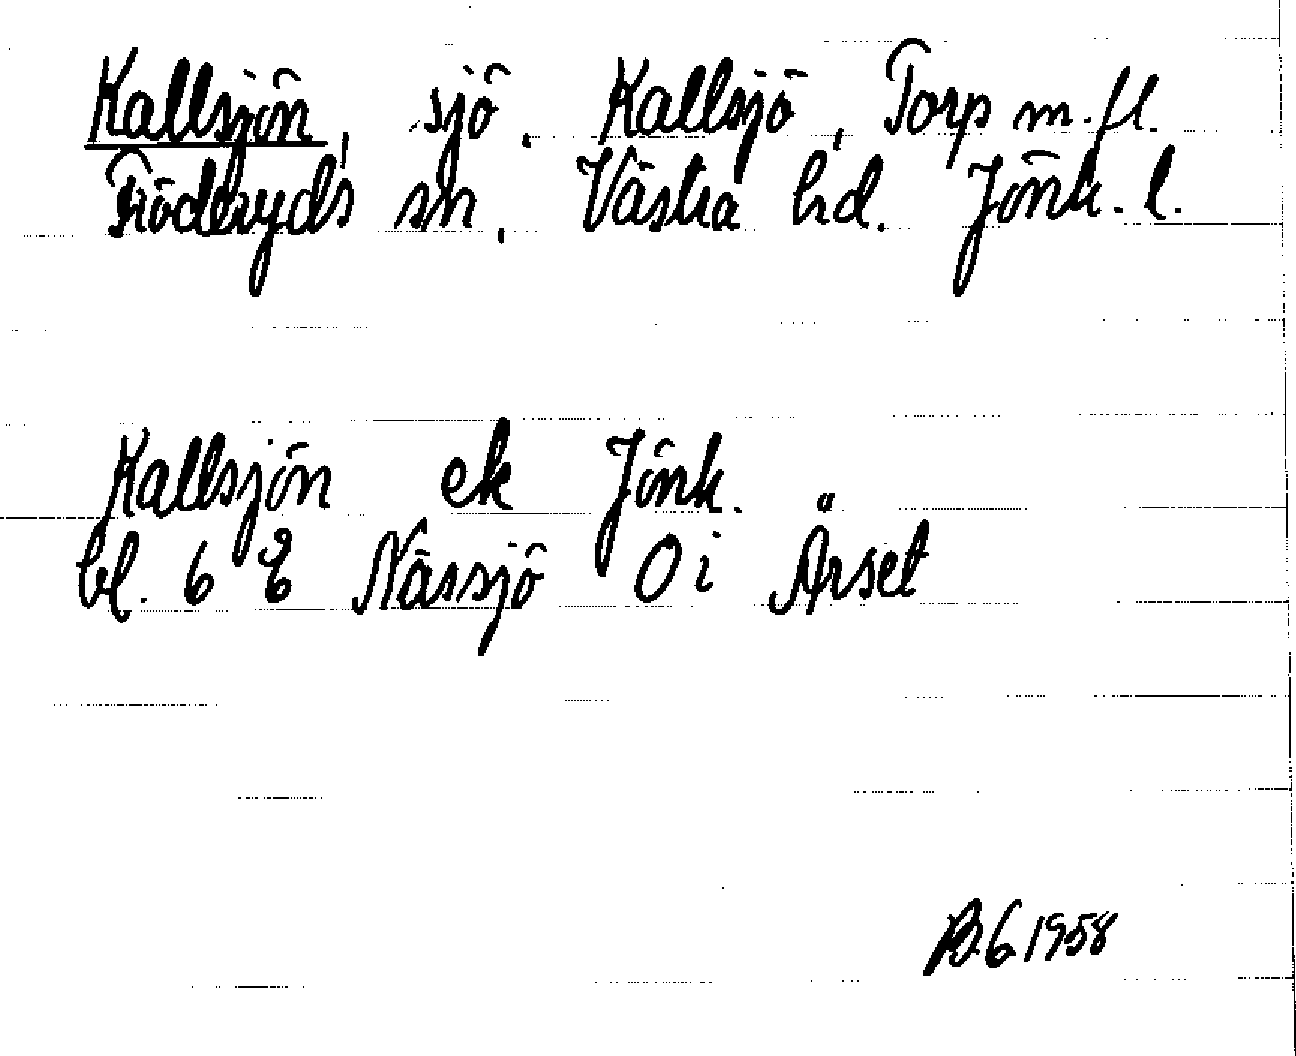 Kallsjön, sjö. Kallsjö, Torp m. fl.
Fröderyds sn. Västra hd. Jönk. l.
Kallsjön ek Jönk.
bl. 6 E Nässjö O i Årset
B.G 1958